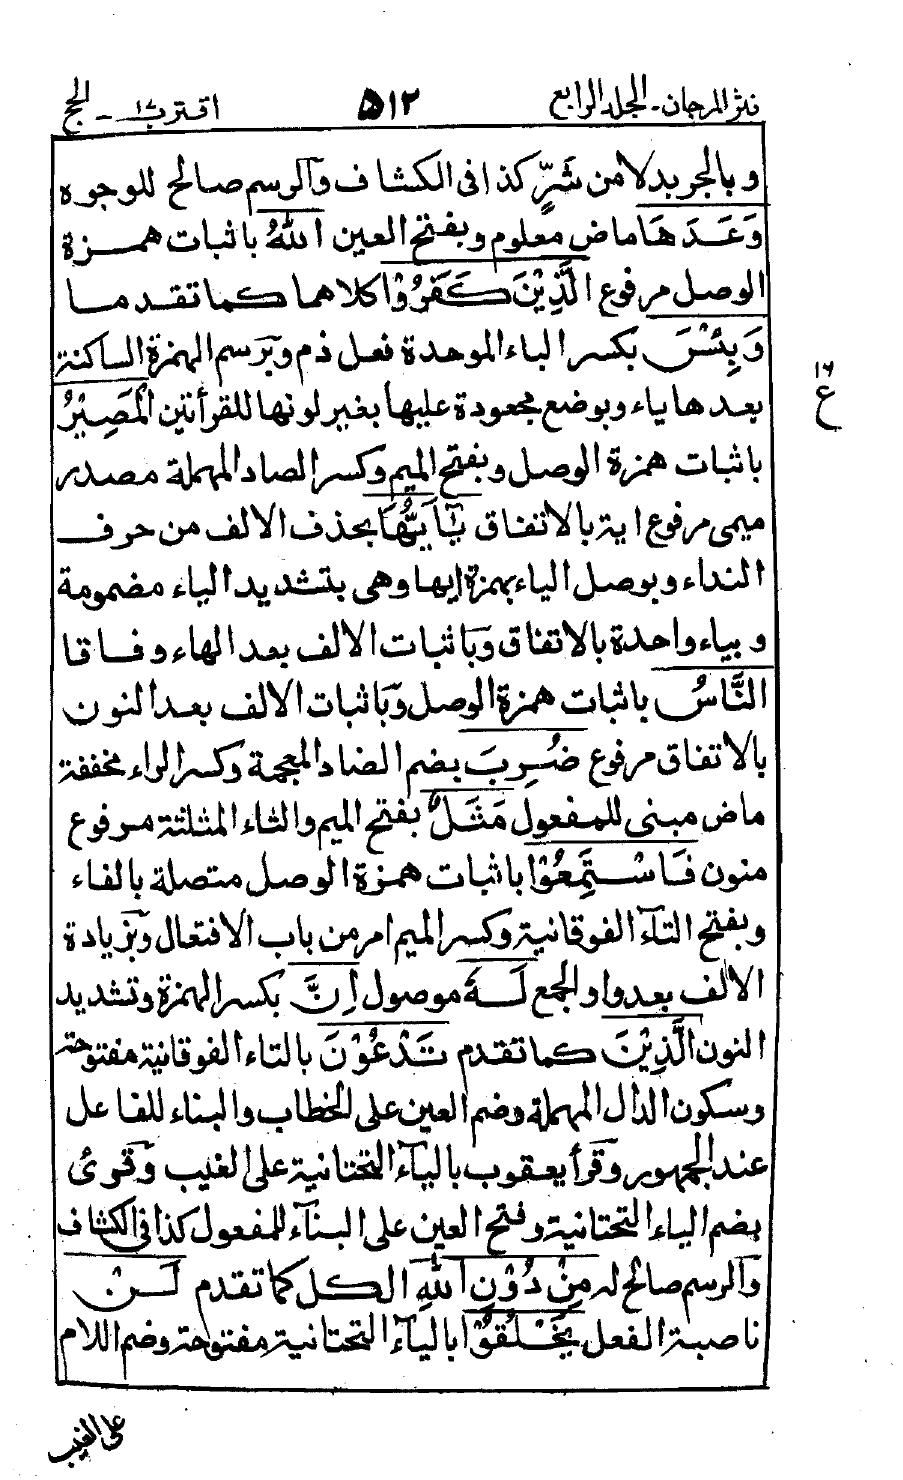 نثر المرجان - المجلد الرابع ۵۱۲ اقترب ١٧ - الحج
وبالجر بدلا من شَرٍّ كذا فى الكشاف وآلرسم صالح للوجوه
وَعَدَهَا ماض معلوم وبفتح العين اللّٰهُ باثبات همزة
الوصل مرفوع الَّذِيْنَ كَفَرُوْا كلاهما كما تقدما
وَبِئْسَ بكسر الباء الموحدة فعل ذم وبرسم الهمزة الساكنة
بعدها ياء وبوضع مجعودة عليها بغير لونها للقرأتين الْمَصِيْرُ
باثبات همزة الوصل وبفتح الميم وكسر الصاد المهملة مصدر
ميمى مرفوع اية بالاتفاق يٰٓاَيُّهَا بحذف الالف من حرف
النداء وبوصل الياء بهمزة ايها وهى بتشديد الياء مضمومة
وبياء واحدة بالاتفاق وباثبات الالف بعد الهاء وفاقا
النَّاسُ باثبات همزة الوصل وباثبات الالف بعد النون
بالاتفاق مرفوع ضُرِبَ بضم الضاد المعجمة وكسر الراء مخففة
ماض مبنى للمفعول مَثَلٌ بفتح الميم والثاء المثلثة مرفوع
منون فَاسْتَمِعُوْا باثبات همزة الوصل متصلة بالفاء
وبفتح التآء الفوقانية وكسر الميم امر من باب الافتعال وبزيادة
الالف بعد واو الجمع لَهٗ موصول اِنَّ بكسر الهمزة وتشديد
النون الَّذِيْنَ كما تقدم تَدْعُوْنَ بالتاء الفوقانية مفتوحة
وسكون الدال المهملة وضم العين على الخطاب والبناء للفاعل
عند الجمهور وقرأ يعقوب باليآء التحتانية على الغيب وقرئ
بضم الياء التحتانية وفتح العين على البنآء للمفعول كذا فى الكشاف
وآلرسم صالح له مِنْ دُوْنِ اللّٰهِ الكل كما تقدم لَنْ
ناصبة الفعل يَخْلُقُوْا باليآء التحتانية مفتوحة وضم اللام
١٦
ع
على الغيب